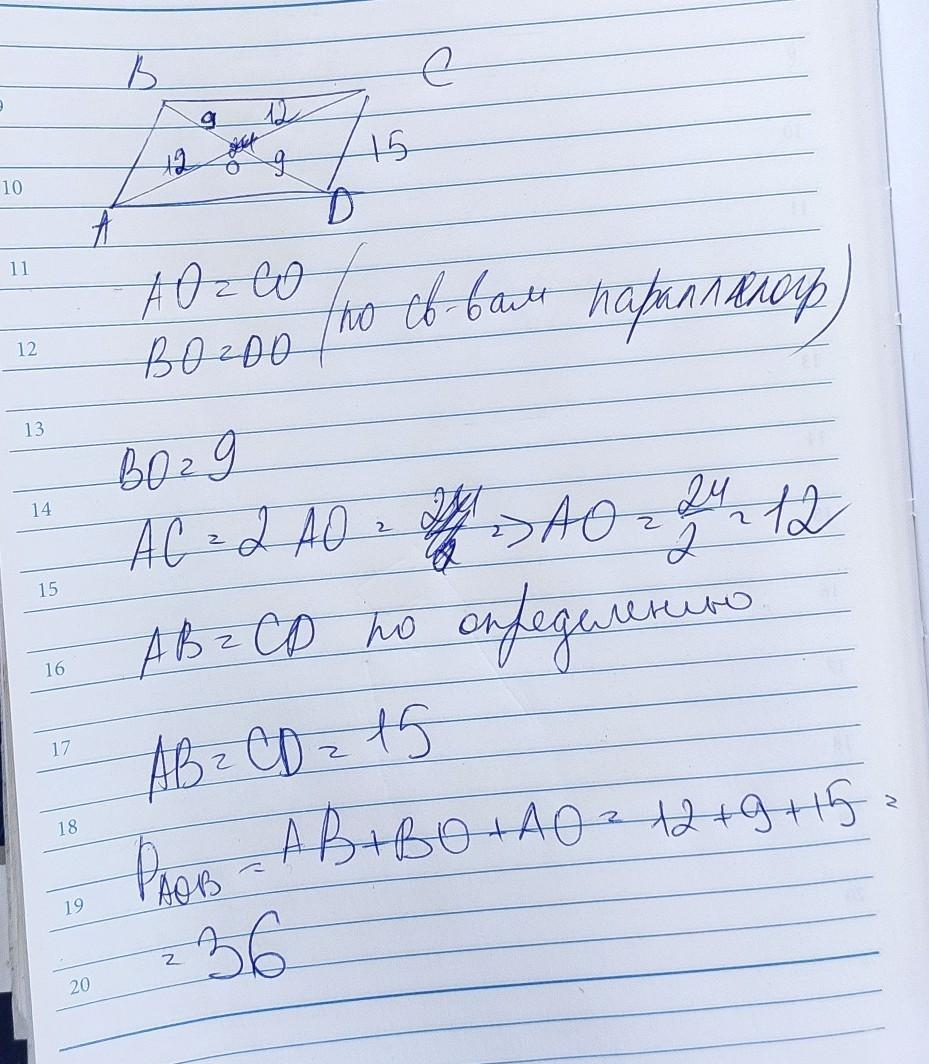 B C
9 12
12 O 9 15
A D
10
11
AO = CO
(по св-вам параллелогр)
12
BO = DO
13
BO = 9
14
AC = 2 AO = 24 => AO = 24/2 = 12
15
AB = CD по определению
16
17
AB = CD = 15
18
P AOB = AB + BO + AO = 12 + 9 + 15 =
19
= 36
20